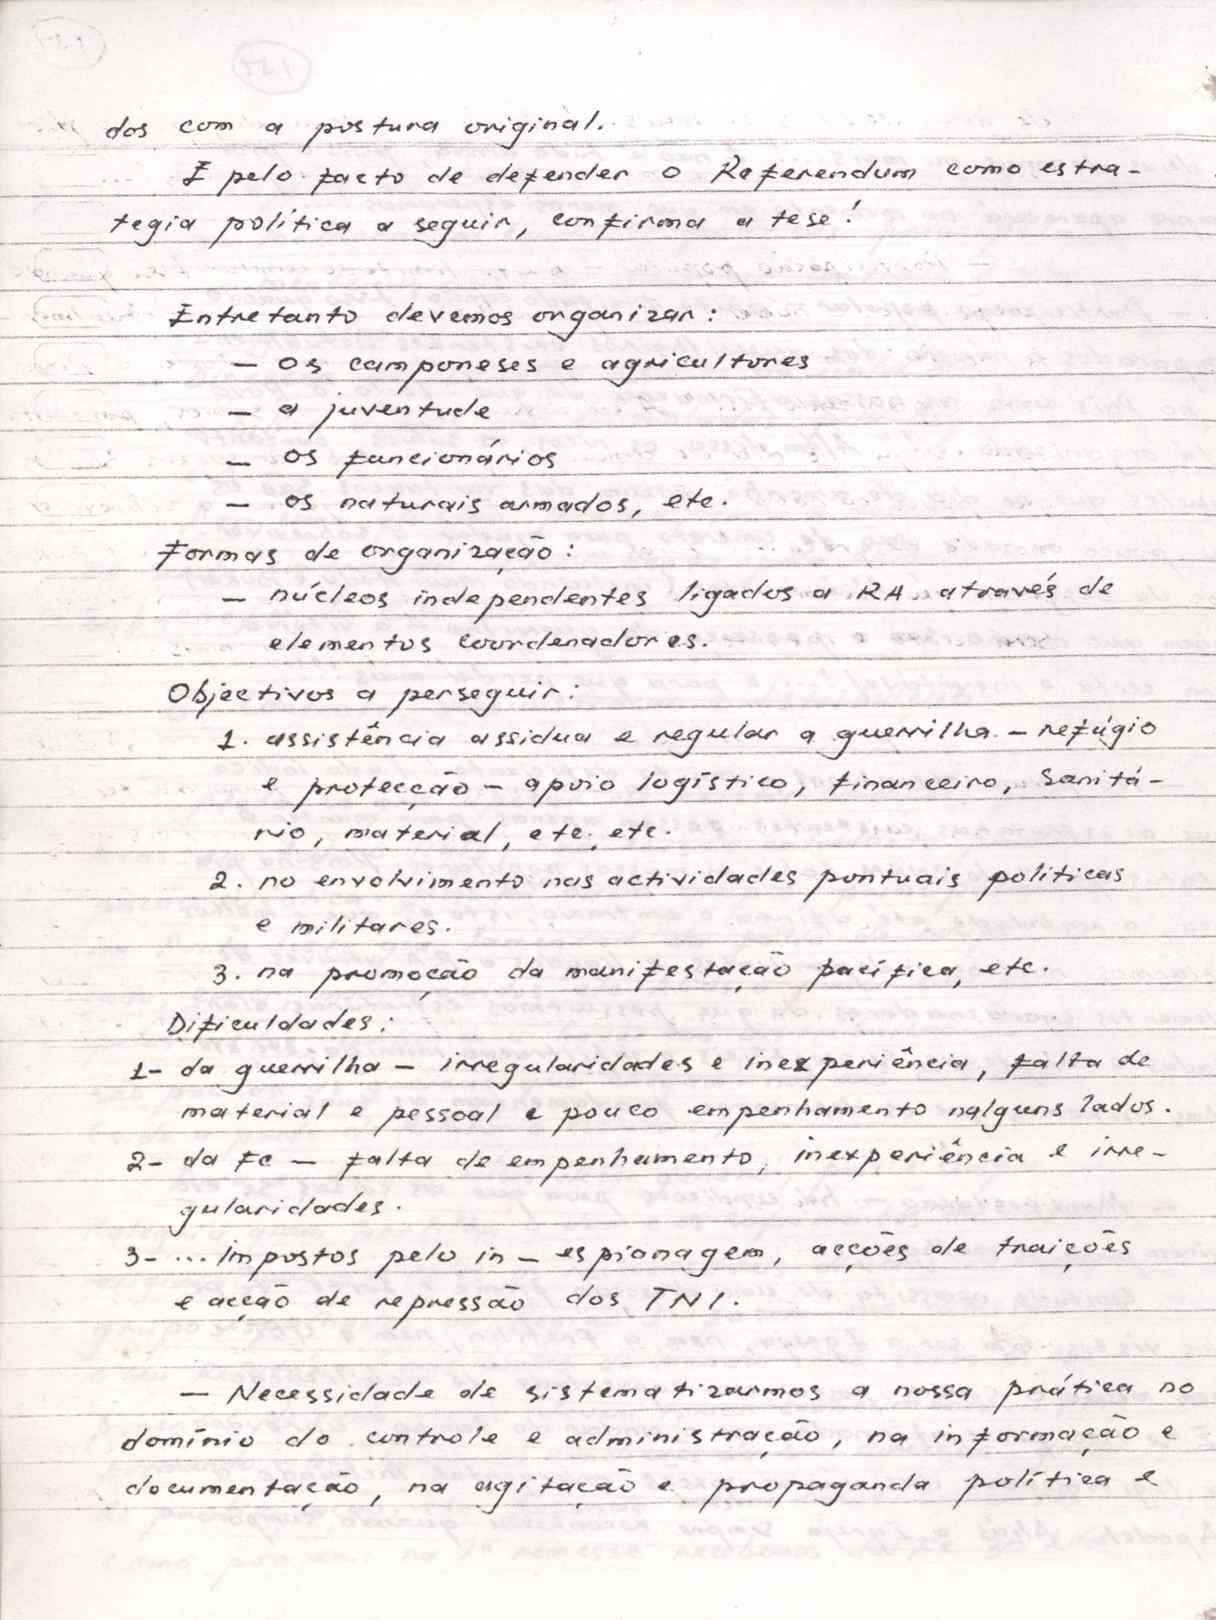 dos com a postura original.
E pelo facto de defender o Referendum como estra-
tegia política a seguir, confirma a tese!
Entretanto devemos organizar:
- Os camponeses e agricultores
- a juventude
- os funcionários
- os naturais armados, etc.
Formas de organização:
- núcleos independentes ligados a RA através de
elementos coordenadores.
Objectivos a perseguir:
1. assistência assidua e regular a guerrilha - refúgio
e protecção - apoio logístico, financeiro, sanitá-
rio, material, etc. etc.
2. no envolvimento nas actividades pontuais politicas
e militares.
3. na promoção da manifestação pacífica, etc.
Dificuldades:
1- da guerrilha - irregularidades e inexperiência, falta de
material e pessoal e pouco empenhamento nalguns lados.
2- da FC - falta de empenhamento, inexperiência e irre-
gularidades.
3- ... impostos pelo in - espionagem, acções de traições
e acção de repressão dos TNI.
- Necessidade de sistematizarmos a nossa prática no
domínio do controle e administração, na informação e
documentação, na agitação e propaganda política e